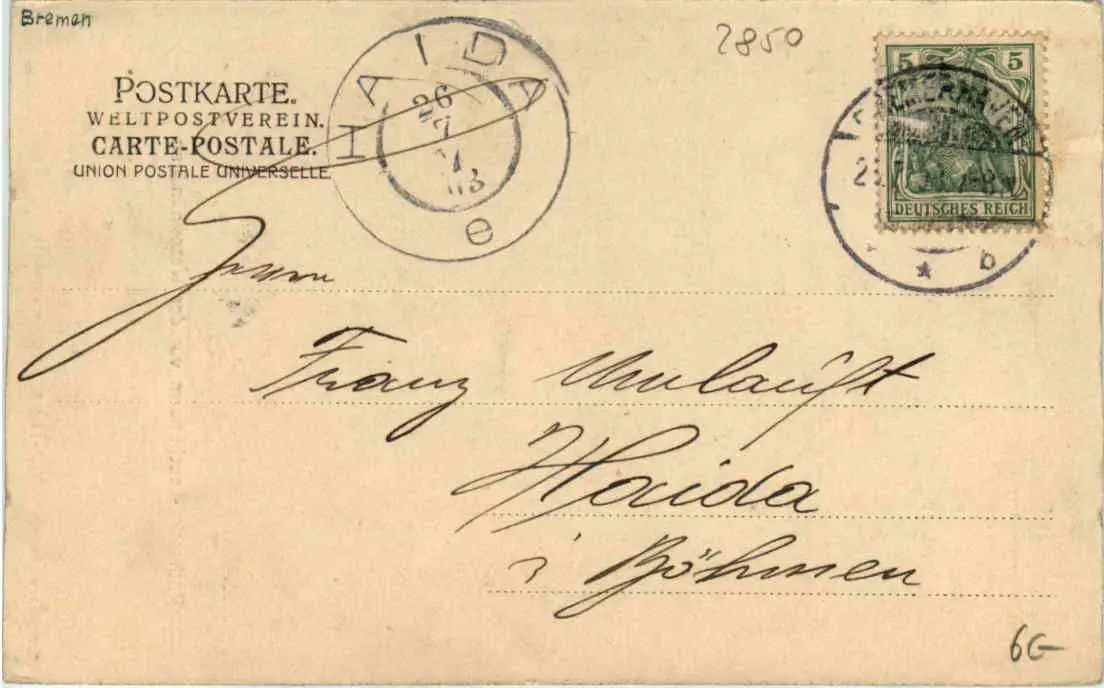 Bremen
2850
POSTKARTE.
WELTPOSTVEREIN.
CARTE-POSTALE.
UNION POSTALE UNIVERSELLE.
HAIDA
26
7
03
e
5 5
DEUTSCHES REICH
b
Herrn
Franz Umlauft
Haida
i Böhmen
6G-